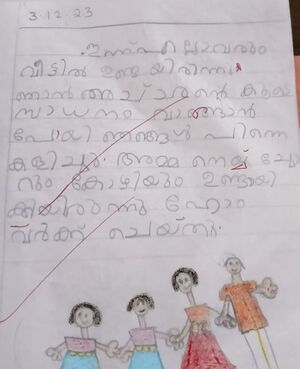 3.12.23
ഇന്ന് എല്ലാവരും
വീട്ടിൽ ഉണ്ടയിരിന്നു
ഞാൻ അച്ഛൻ്റെ കൂടെ
സാധനം വാങ്ങാൻ
പോയി ഞങ്ങൾ പിന്നെ
കളിച്ചു. അമ്മ നെയ്
റും കോഴിയും ഉണ്ടായി
ക്കിയിരുന്നു ഹോം
വർക്ക് ചെയ്തു.